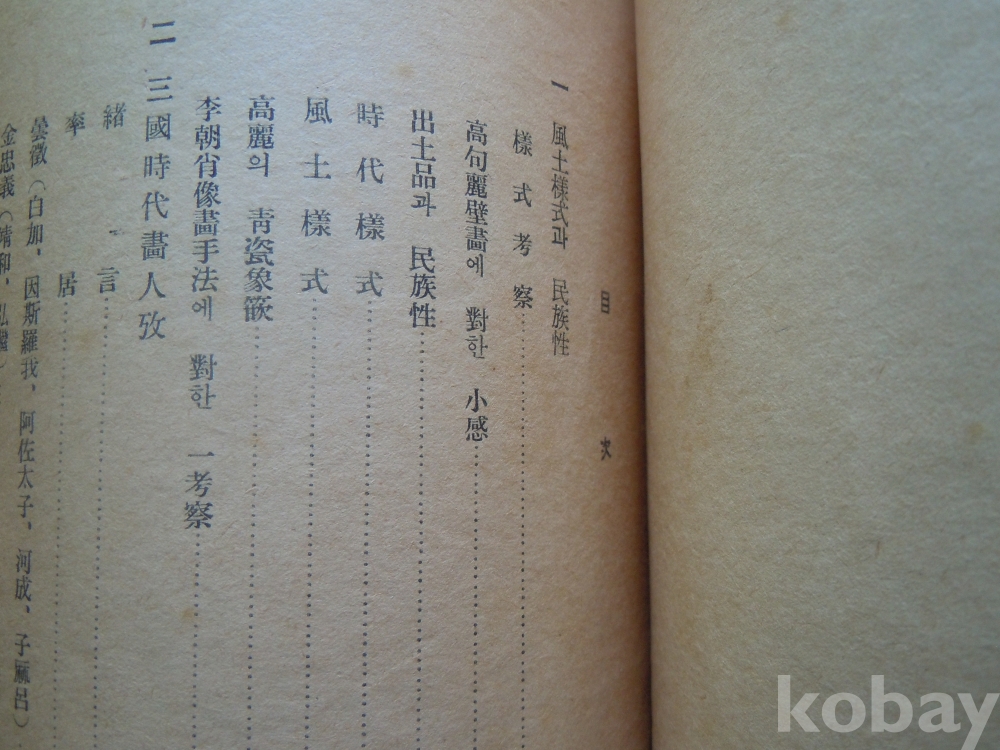 目次
一 風土樣式과 民族性
樣式考察
高句麗壁畫에 對한 小感
出土品과 民族性
時代樣式
風土樣式
高麗의 靑瓷象嵌
李朝肖像畫手法에 對한 一考察
二 三國時代畫人攷
緖言
率居
曇徵(白加, 因斯羅我, 阿佐太子, 河成, 子麻呂)
金忠義(靖和, 弘繼)
kobay